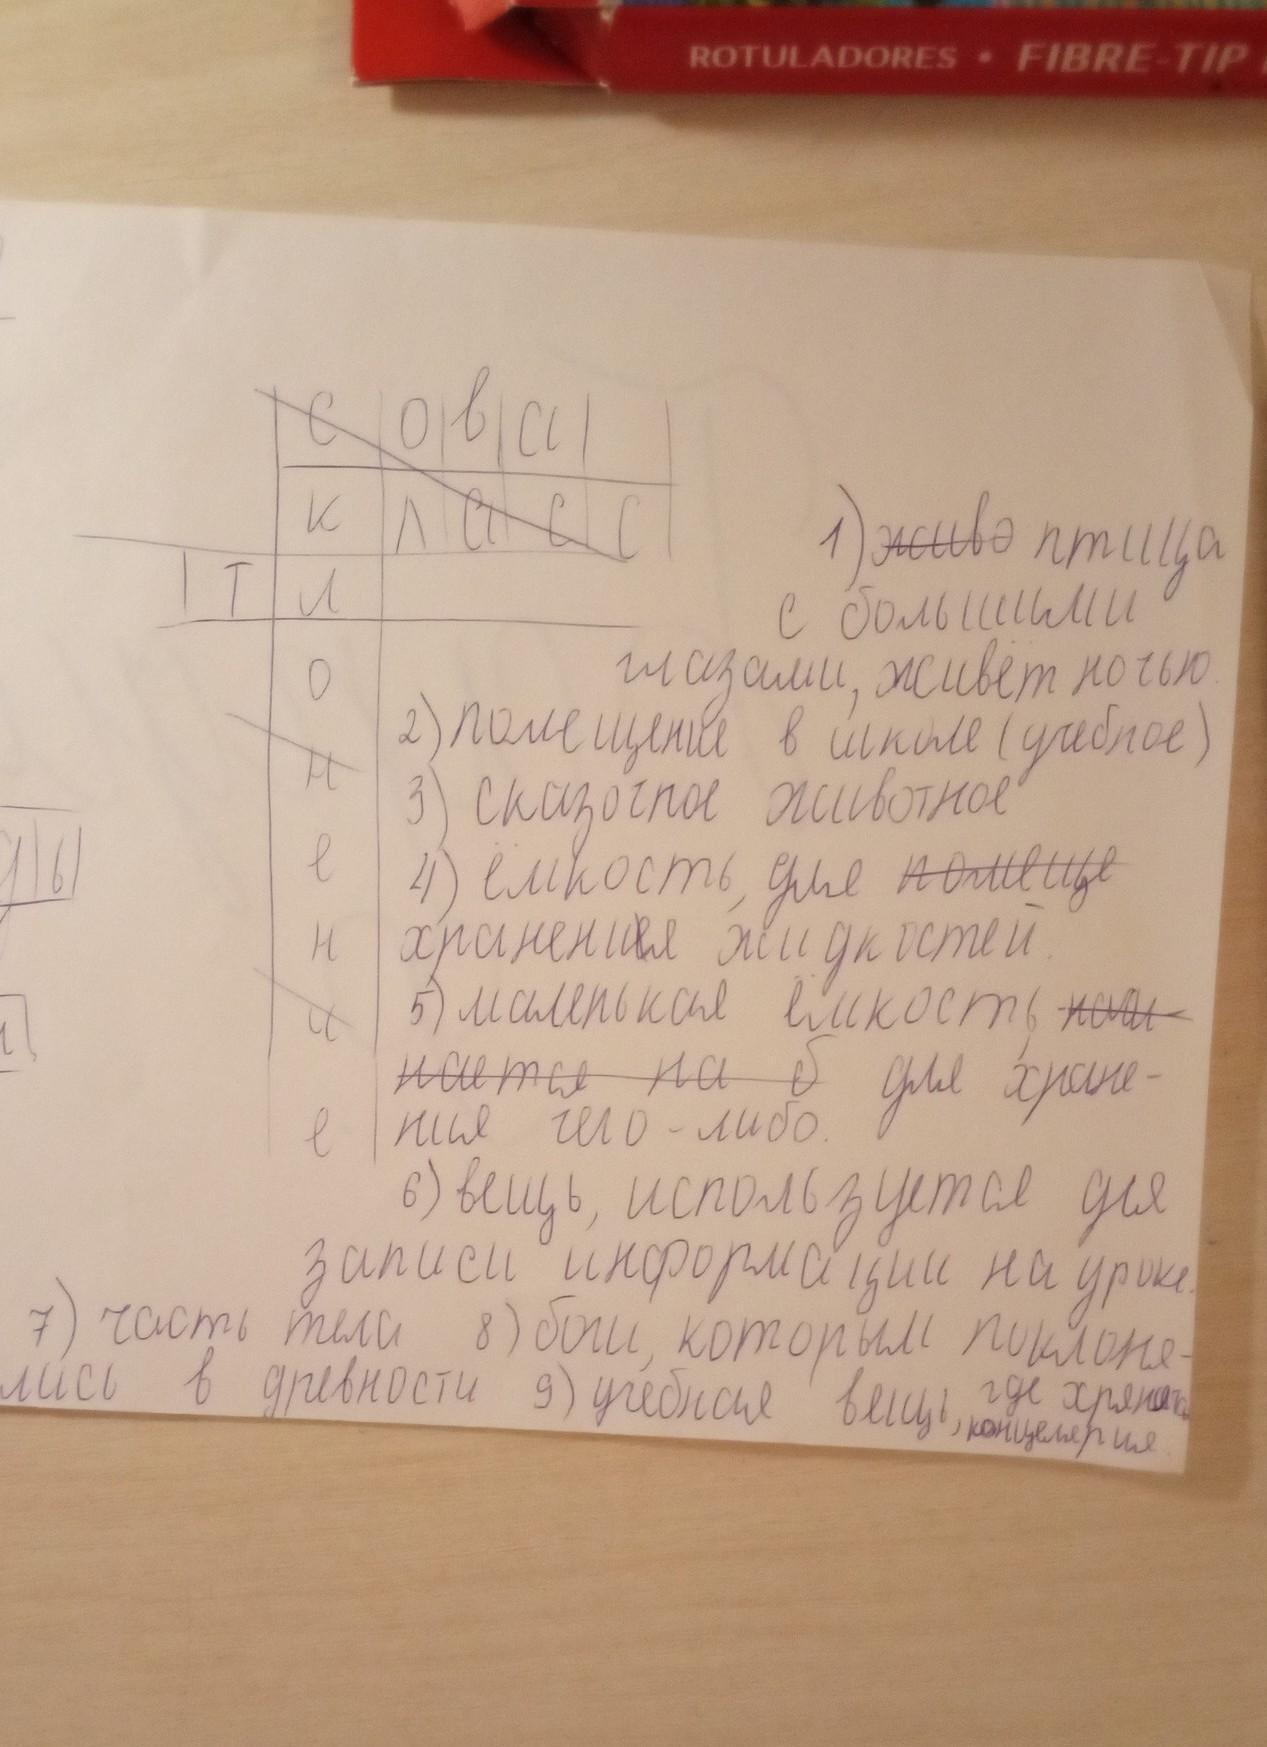 ROTULADORES • FIBRE-TIP
С О В А
К Л А С С
Т Л
О
Н
е
н
и
е
ды
1) живо птица
с большими
глазами, живёт ночью.
2) помещение в школе (учебное)
3) сказочное животное
4) ёмкость, для помеще
хранения жидкостей.
5) маленькая ёмкость, начи-
нается на б для хране-
ния чего-либо.
6) вещь, используется для
записи информации на уроке.
7) часть тела 8) боги, которым поклоня-
лись в древности 9) учебная вещь, где хранят
концелярия